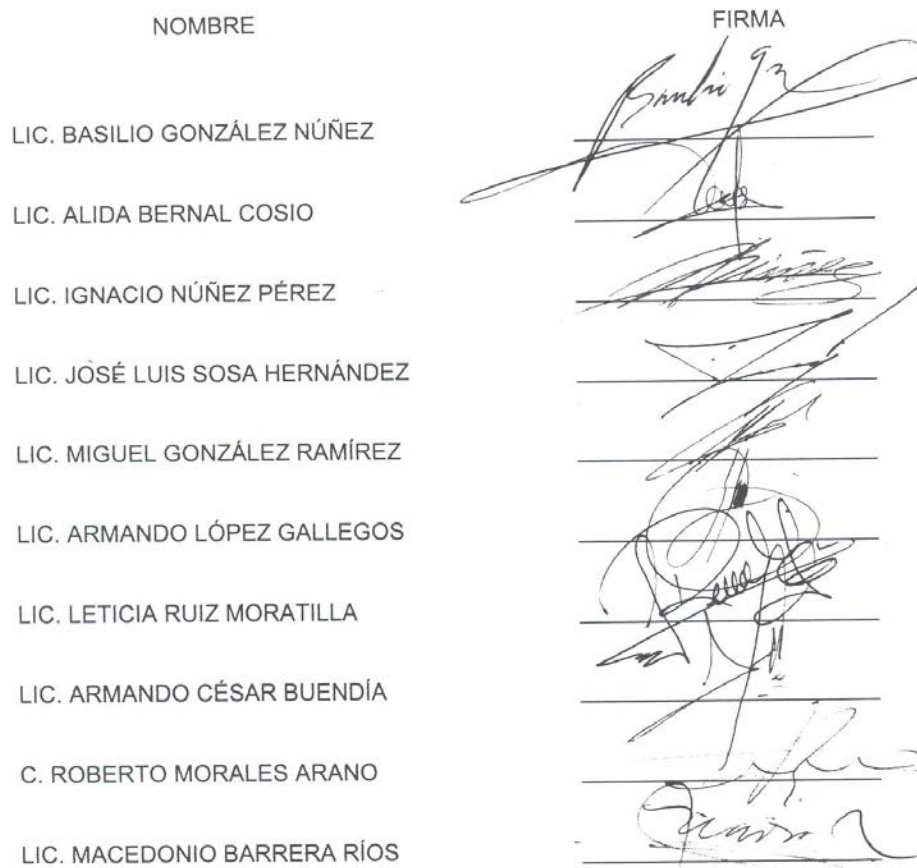 NOMBRE FIRMA
LIC. BASILIO GONZÁLEZ NÚÑEZ
LIC. ALIDA BERNAL COSIO
LIC. IGNACIO NÚÑEZ PÉREZ
LIC. JOSÉ LUIS SOSA HERNÁNDEZ
LIC. MIGUEL GONZÁLEZ RAMÍREZ
LIC. ARMANDO LÓPEZ GALLEGOS
LIC. LETICIA RUIZ MORATILLA
LIC. ARMANDO CÉSAR BUENDÍA
C. ROBERTO MORALES ARANO
LIC. MACEDONIO BARRERA RÍOS